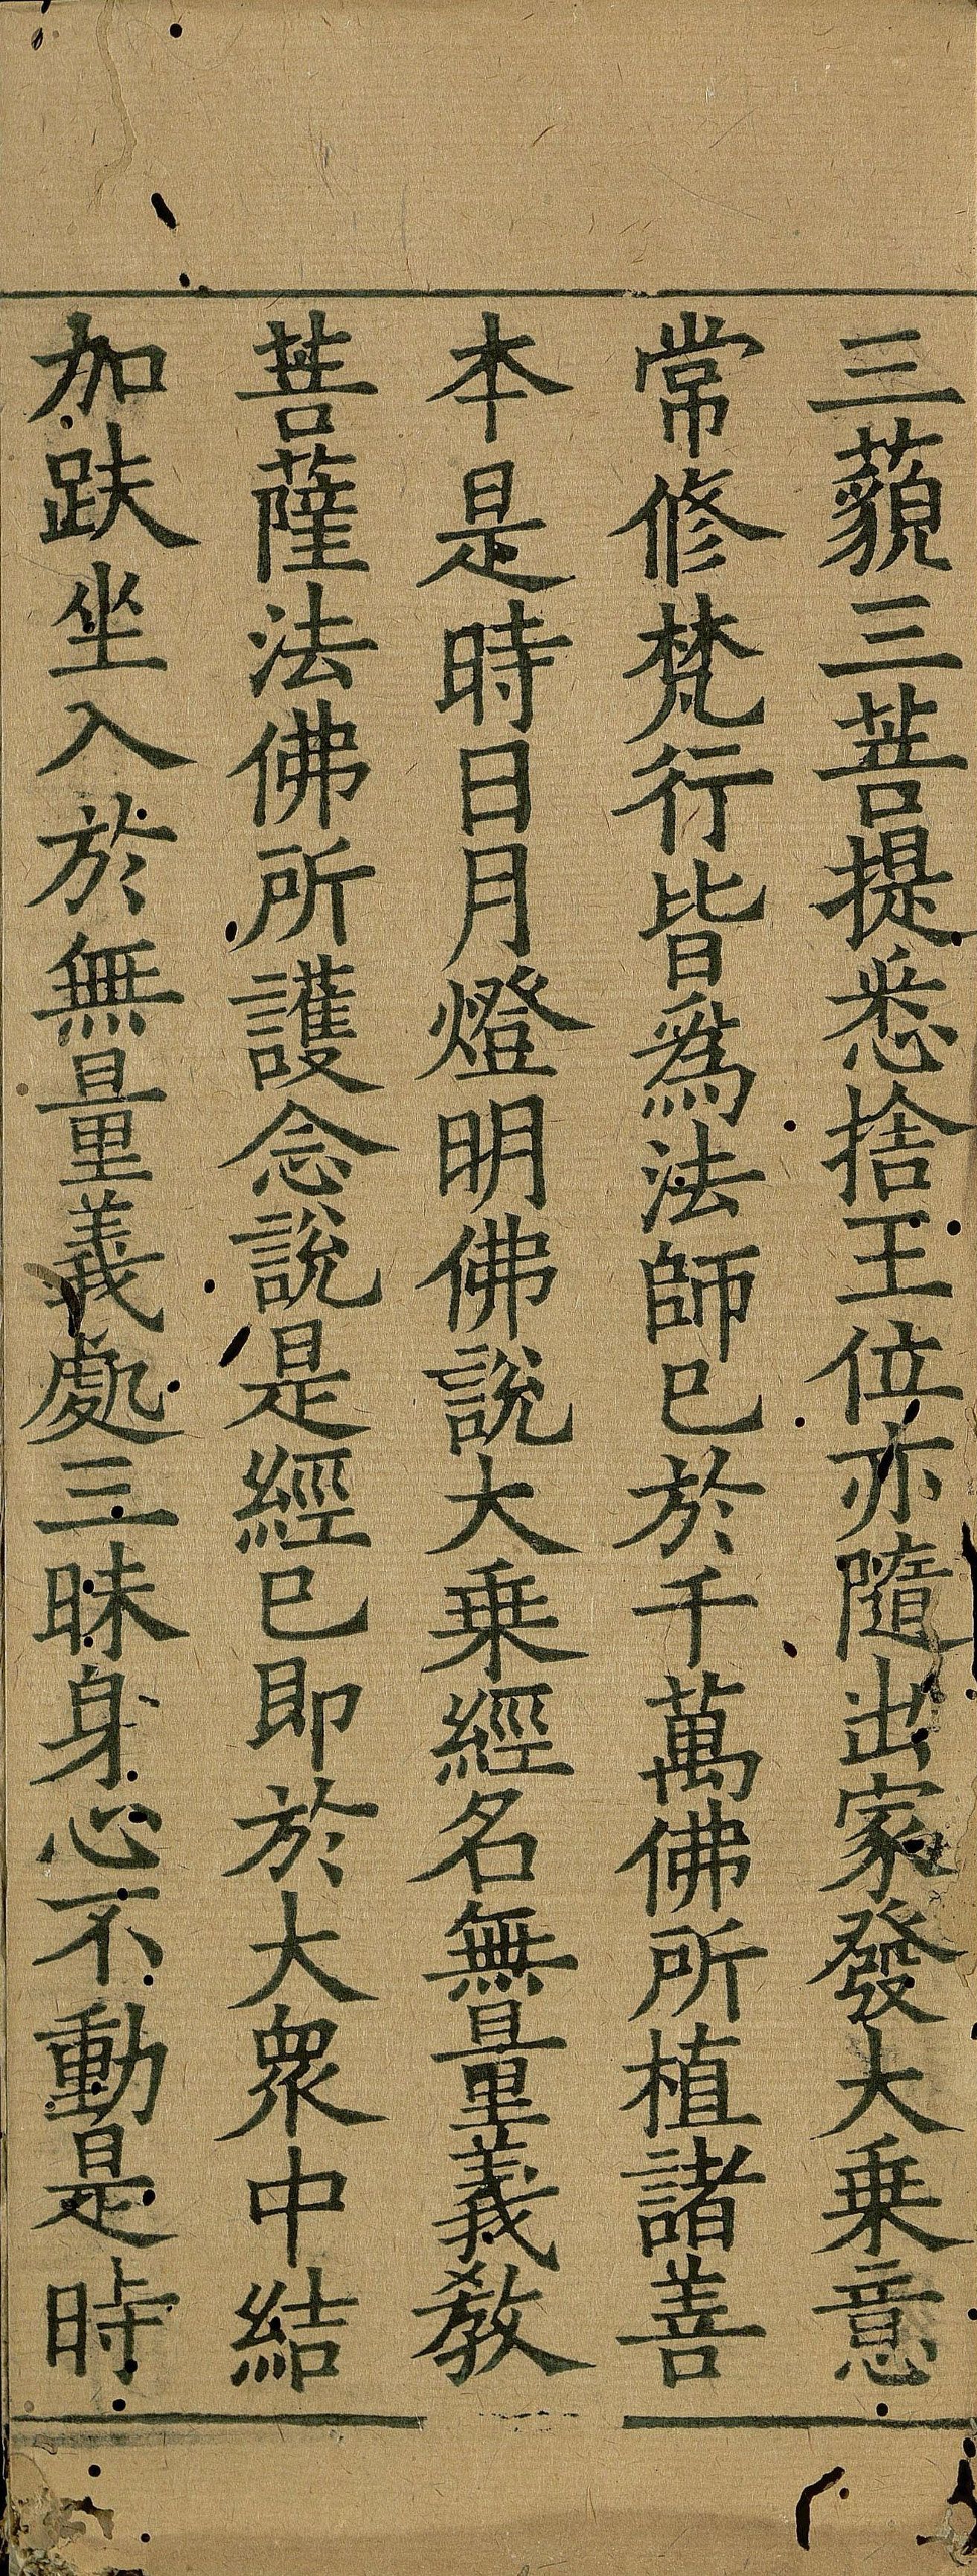 三藐三菩提悉捨王位亦隨出家發大乗意
常修梵行皆爲法師已於千萬佛所植諸善
本是時日月燈明佛說大乗經名無量義教
菩薩法佛所護念說是經已即於大衆中結
加趺坐入於無量義處三昧身心不動是時